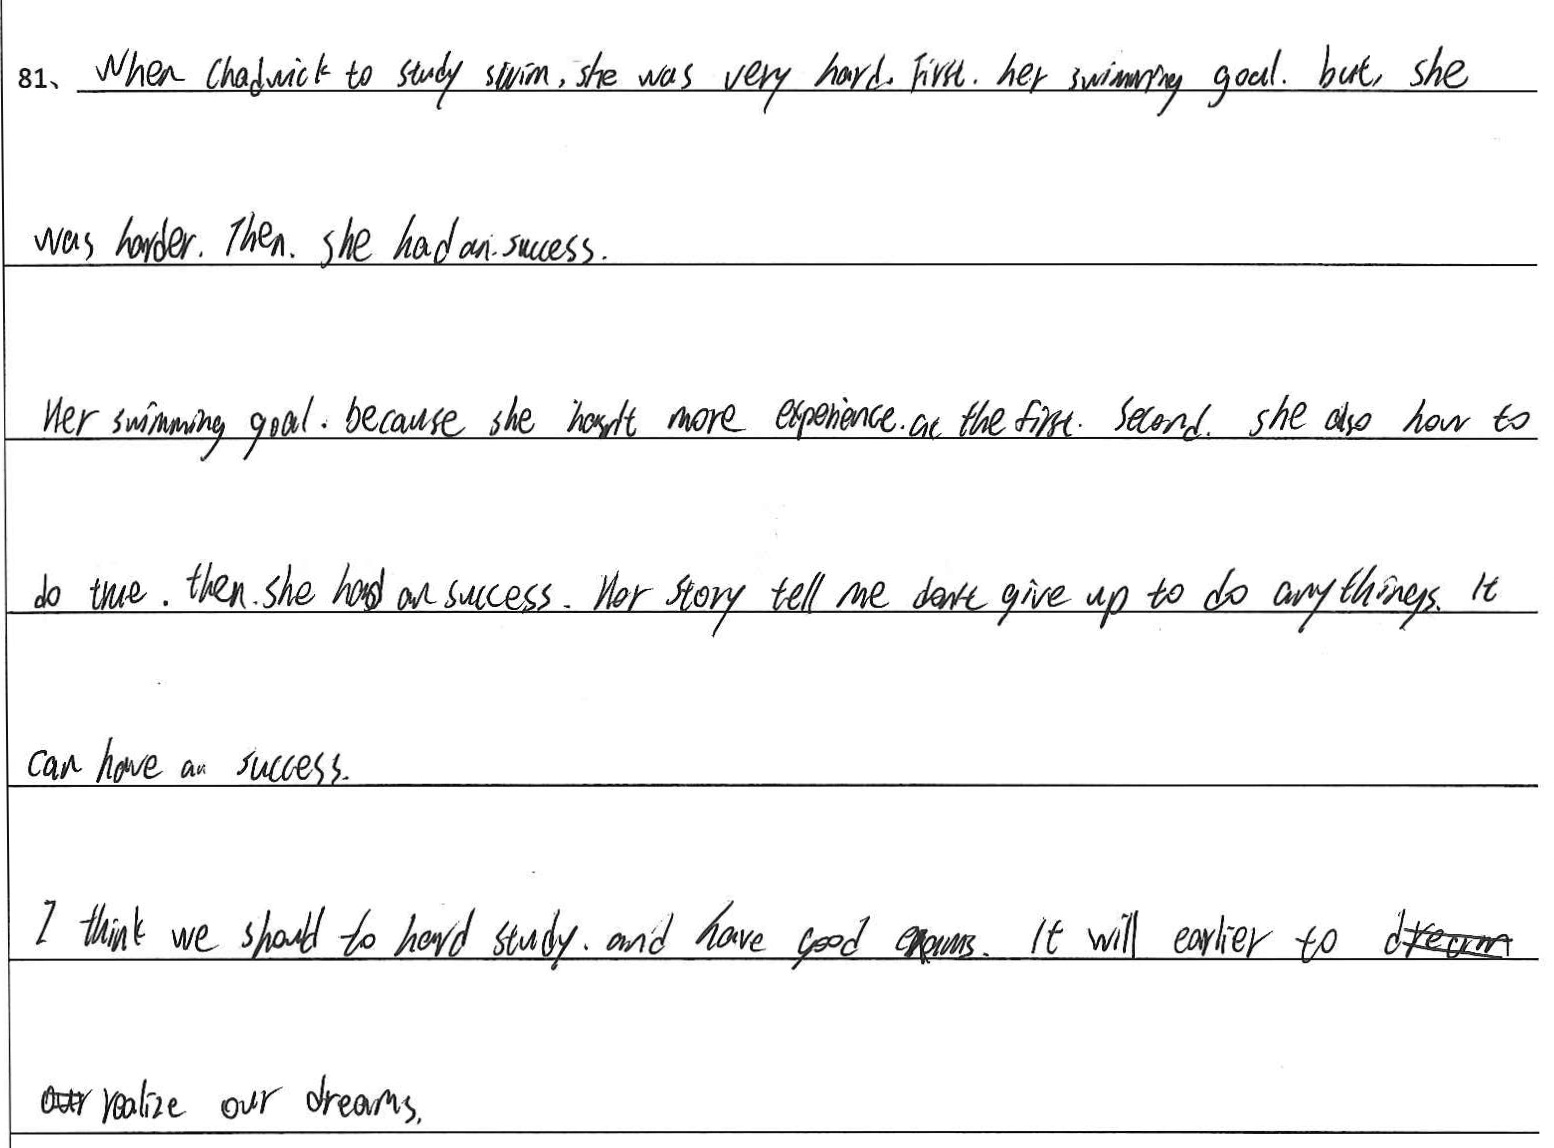 81、 When Chadwick to study swim, she was very hard. First. her swimming goal. but, she
was harder. Then. she had an success.
Her swimming goal. because she hasn't more experience. at the first. Second. she also how to
do true. then. she had an success. Her story tell me don't give up to do anythings. It
can have an success.
I think we should to hard study. and have good exams. It will earlier to
realize our dreams.